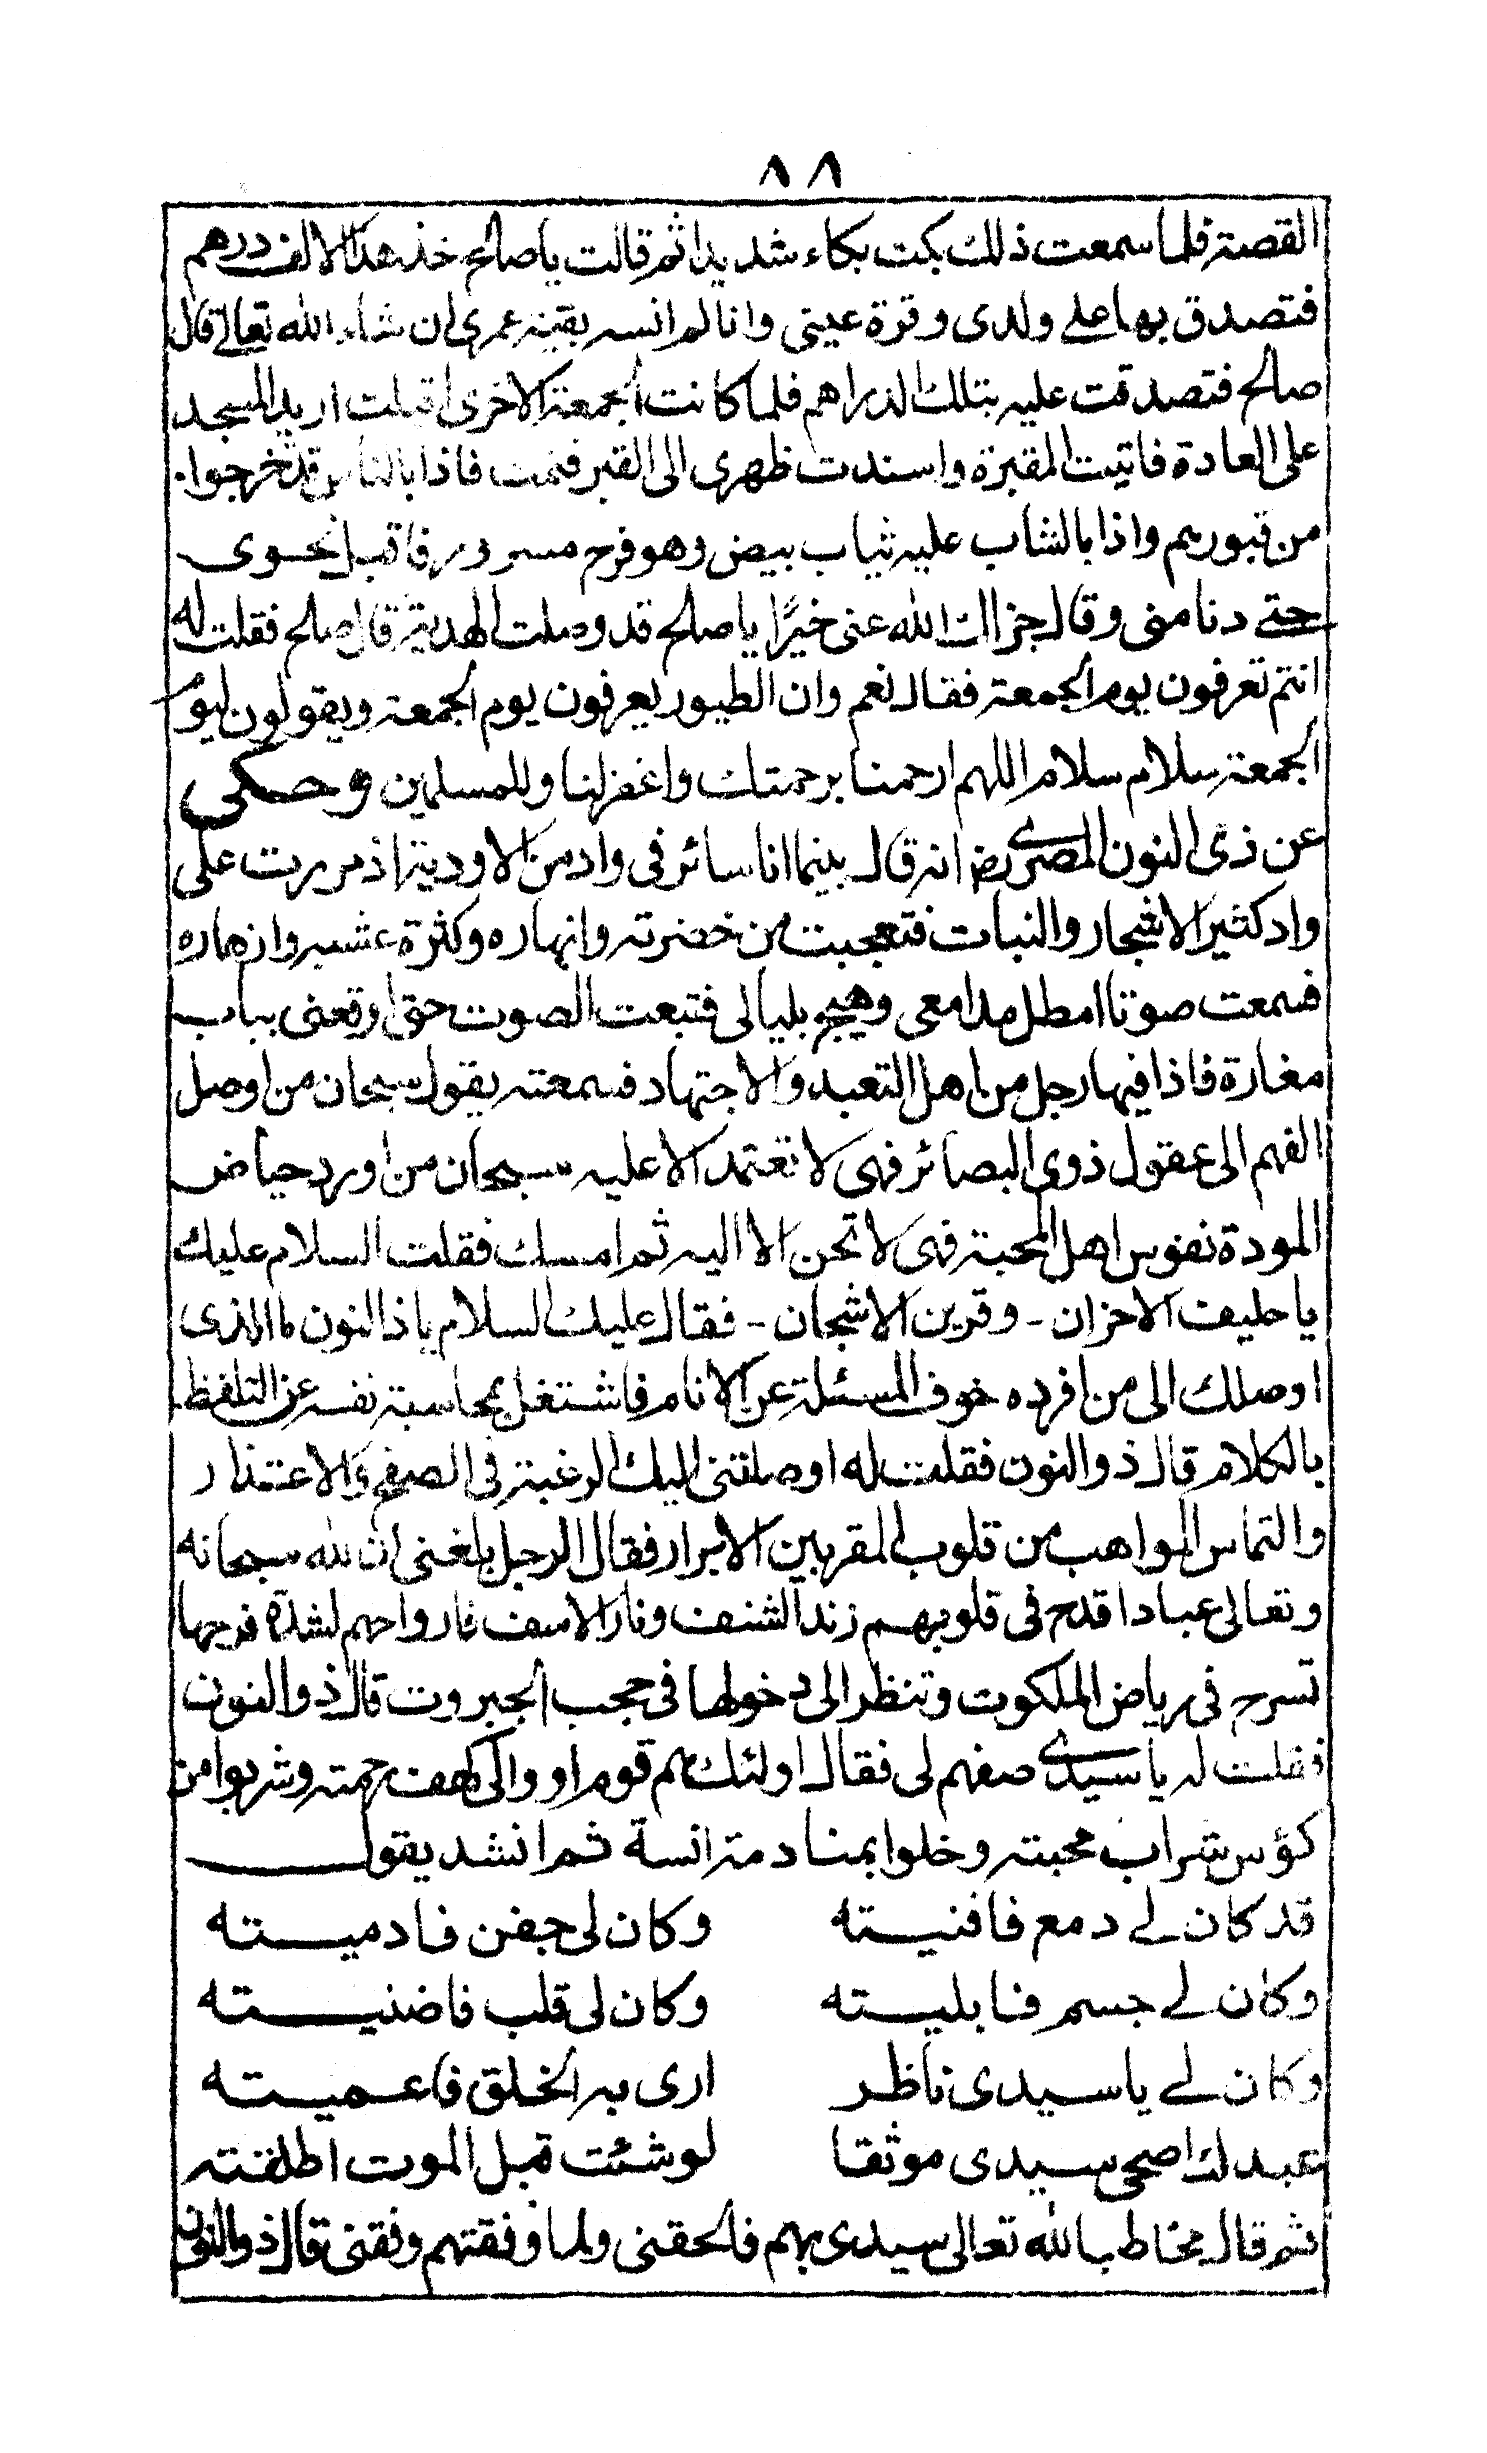 ٨٨
القصة فلما سمعت ذلك بكت بكاء شديدا ثم قالت يا صالح خذ هذا الالف درهم
فتصدق بها على ولدى وقرة عينى وانا لم انسه بقية عمرى ان شاء الله تعالى قال
صالح فتصدقت عليه بتلك الدراهم فلما كانت الجمعة الاخرى اقبلت اريد المسجد
على العادة فاتيت المقبرة واسندت ظهرى الى القبر فنمت فاذا بالناس قد خرجوا
من قبورهم واذا بالشاب عليه ثياب بيض وهو فرح مسرور فاقبل نحوى
حتى دنا منى وقال جزاك الله عنى خيرًا يا صالح قد وصلت الهدية قال صالح فقلت له
انتم تعرفون يوم الجمعة فقال نعم وان الطيور يعرفون يوم الجمعة ويقولون ليوم
الجمعة سلام سلام اللهم ارحمنا برحمتك واغفر لنا وللمسلمين وحكى
عن ذى النون المصرى رض انه قال بينما انا سائر فى واد من الاودية اذ مررت على
واد كثير الاشجار والنبات فتعجبت من خضرته وانهاره وكثرة عشبه وازهاره
فسمعت صوتا امطل مدامعى وهيج بليالى فتبعت الصوت حتى اوقعنى بباب
مغارة فاذا فيها رجل من اهل التعبد والاجتهاد فسمعته يقول سبحان من اوصل
الفهم الى عقول ذوى البصائر فهى لا تعتمد الا عليه سبحان من اورد حياض
المودة نفوس اهل المحبة فهى لا تحن الا اليه ثم امسك فقلت السلام عليك
يا حليف الاحزان - وقرين الاشجان - فقال عليك السلام يا ذا النون ما الذى
اوصلك الى من افرده خوف المسئلة عن الانام فاشتغل بمحاسبة نفسه عن التلفظ
بالكلام قال ذو النون فقلت له اوصلتنى اليك الرغبة فى الصفح والاعتذار
والتماس المواهب من قلوب المقربين الابرار فقال الرجل بلغنى ان لله سبحانه
وتعالى عبادا قدح فى قلوبهم زند الشغف ونار الاسف فارواحهم لشدة فرحها
تسرح فى رياض الملكوت وتنظر الى دخولها فى حجب الجبروت قال ذو النون
فقلت له يا سيدى صفهم لى فقال اولئك هم قوم اووا الى كهف رحمته وشربوا من
كؤس شراب محبته وخلوا بمنادمة انسة ثم انشد يقول
قد كان لى دمع فافنيته وكان لى جفن فادميته
وكان لى جسم فابليته وكان لى قلب فاضنيته
وكان لى يا سيدى ناظر ارى به الخلق فاعميته
عبدك اضحى سيدى موثقا لو شئت قبل الموت اطلقته
ثم قال مخاطبا لله تعالى سيدى بهم فالحقنى ولما وفقتهم وفقنى قال ذو النون